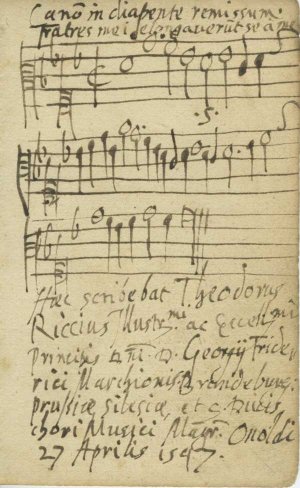 Canō in diapente remissum
fratres mei elongaverūt se a me
.5.
Hæc scribebat Theodorus
Riccius Illustr.mi ac Excell.mi
Principis Dñi. D. Georgij Fride
rici Marchionis Brandeburg.
prussiæ silesiæ et c. Ducis
chori Musici Magr. Onoldi
27 Aprilis 1597.